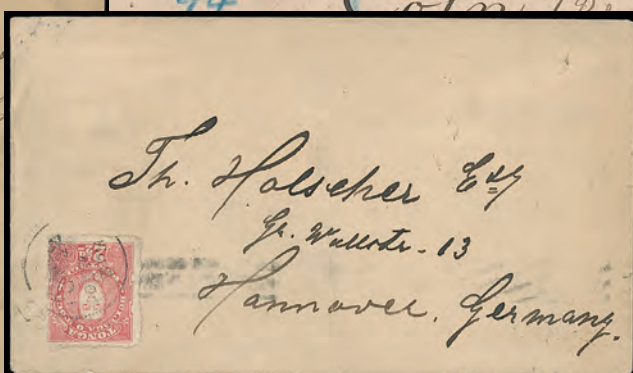 Th. Holscher Esq
Gr. Wallstr. 13
Hannover. Germany.
TONGA
2½